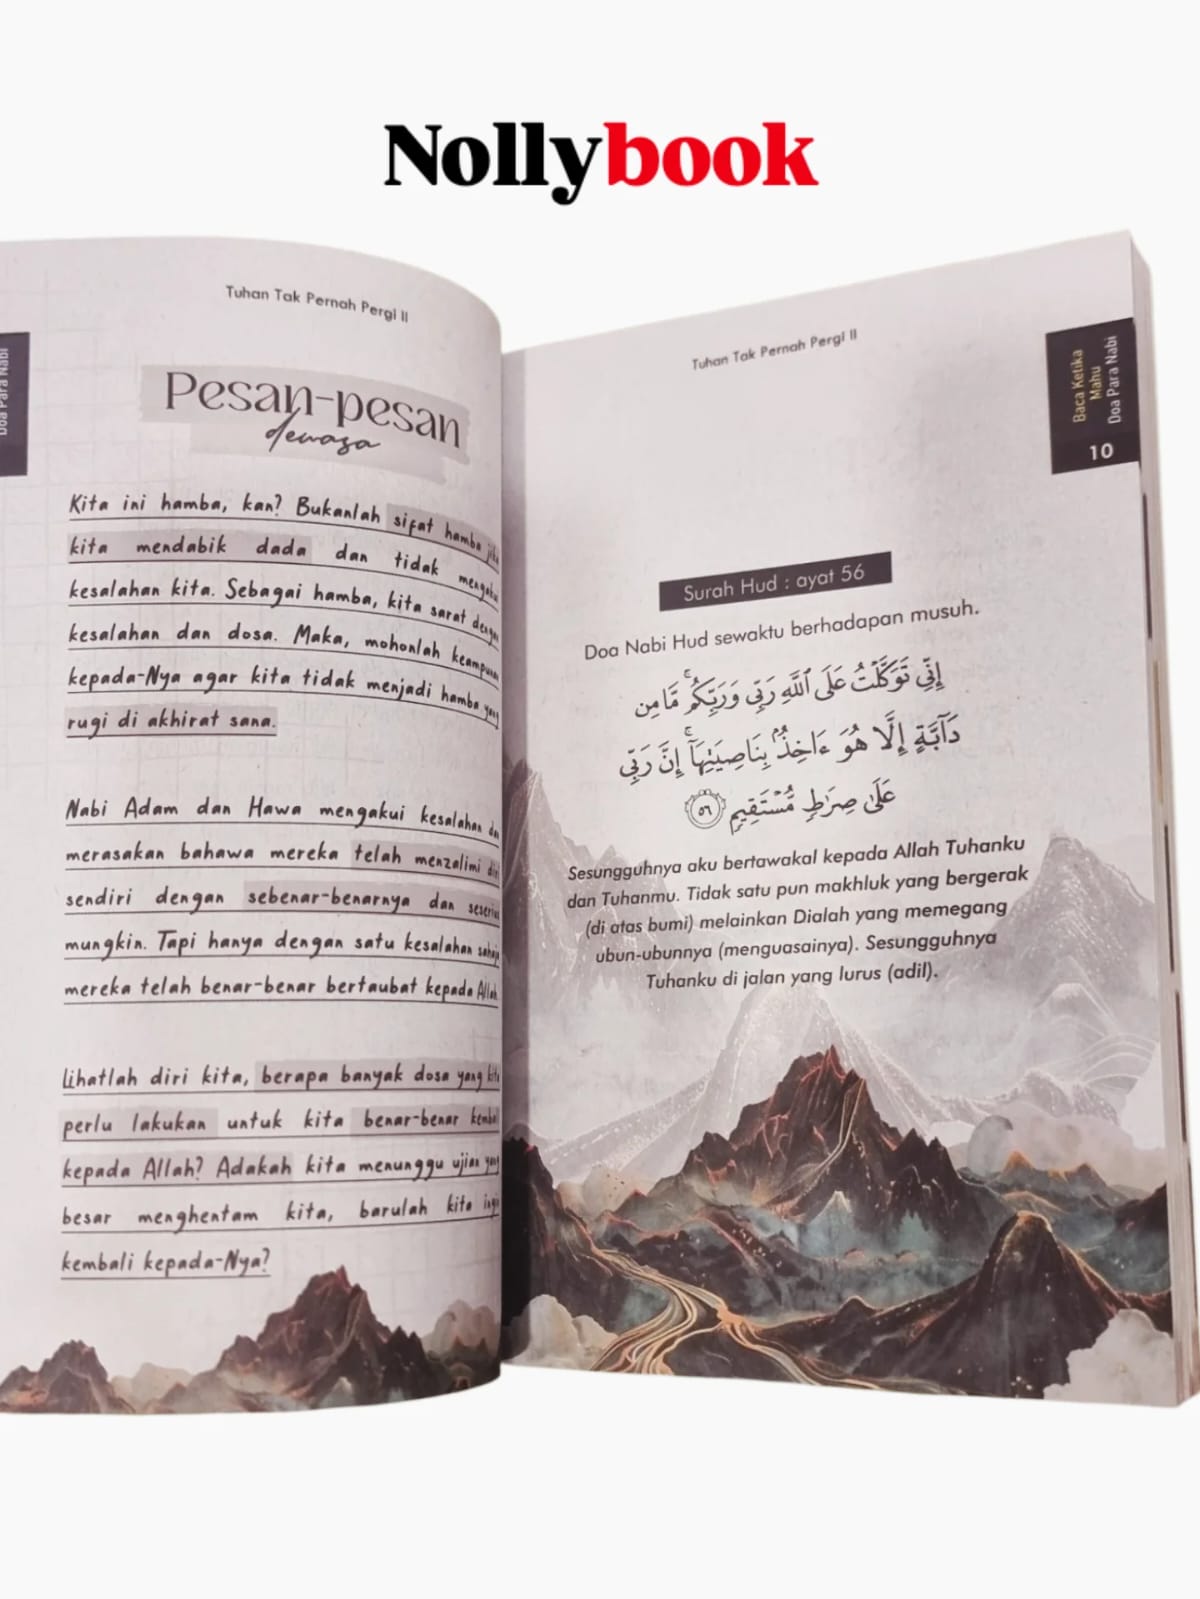 Nollybook
Doa Para Nabi
Tuhan Tak Pernah Pergi II
Pesan-pesan
dewasa
Kita ini hamba, kan? Bukanlah sifat hamba jika
kita mendabik dada dan tidak mengaku
kesalahan kita. Sebagai hamba, kita sarat dengan
kesalahan dan dosa. Maka, mohonlah keampunan
kepada-Nya agar kita tidak menjadi hamba yang
rugi di akhirat sana.
Nabi Adam dan Hawa mengakui kesalahan dan
merasakan bahawa mereka telah menzalimi diri
sendiri dengan sebenar-benarnya dan seserius
mungkin. Tapi hanya dengan satu kesalahan sahaja
mereka telah benar-benar bertaubat kepada Allah.
Lihatlah diri kita, berapa banyak dosa yang kita
perlu lakukan untuk kita benar-benar kembali
kepada Allah? Adakah kita menunggu ujian yang
besar menghentam kita, barulah kita ingin
kembali kepada-Nya?
Tuhan Tak Pernah Pergi II
Baca Ketika
Mahu
Doa Para Nabi
10
Surah Hud : ayat 56
Doa Nabi Hud sewaktu berhadapan musuh.
إِنِّي تَوَكَّلْتُ عَلَى ٱللَّهِ رَبِّي وَرَبِّكُمۚ مَّا مِن
دَآبَّةٍ إِلَّا هُوَ ءَاخِذُۢ بِنَاصِيَتِهَآۚ إِنَّ رَبِّي
عَلَىٰ صِرَٰطٖ مُّسۡتَقِيمٖ ٥٦
Sesungguhnya aku bertawakal kepada Allah Tuhanku
dan Tuhanmu. Tidak satu pun makhluk yang bergerak
(di atas bumi) melainkan Dialah yang memegang
ubun-ubunnya (menguasainya). Sesungguhnya
Tuhanku di jalan yang lurus (adil).